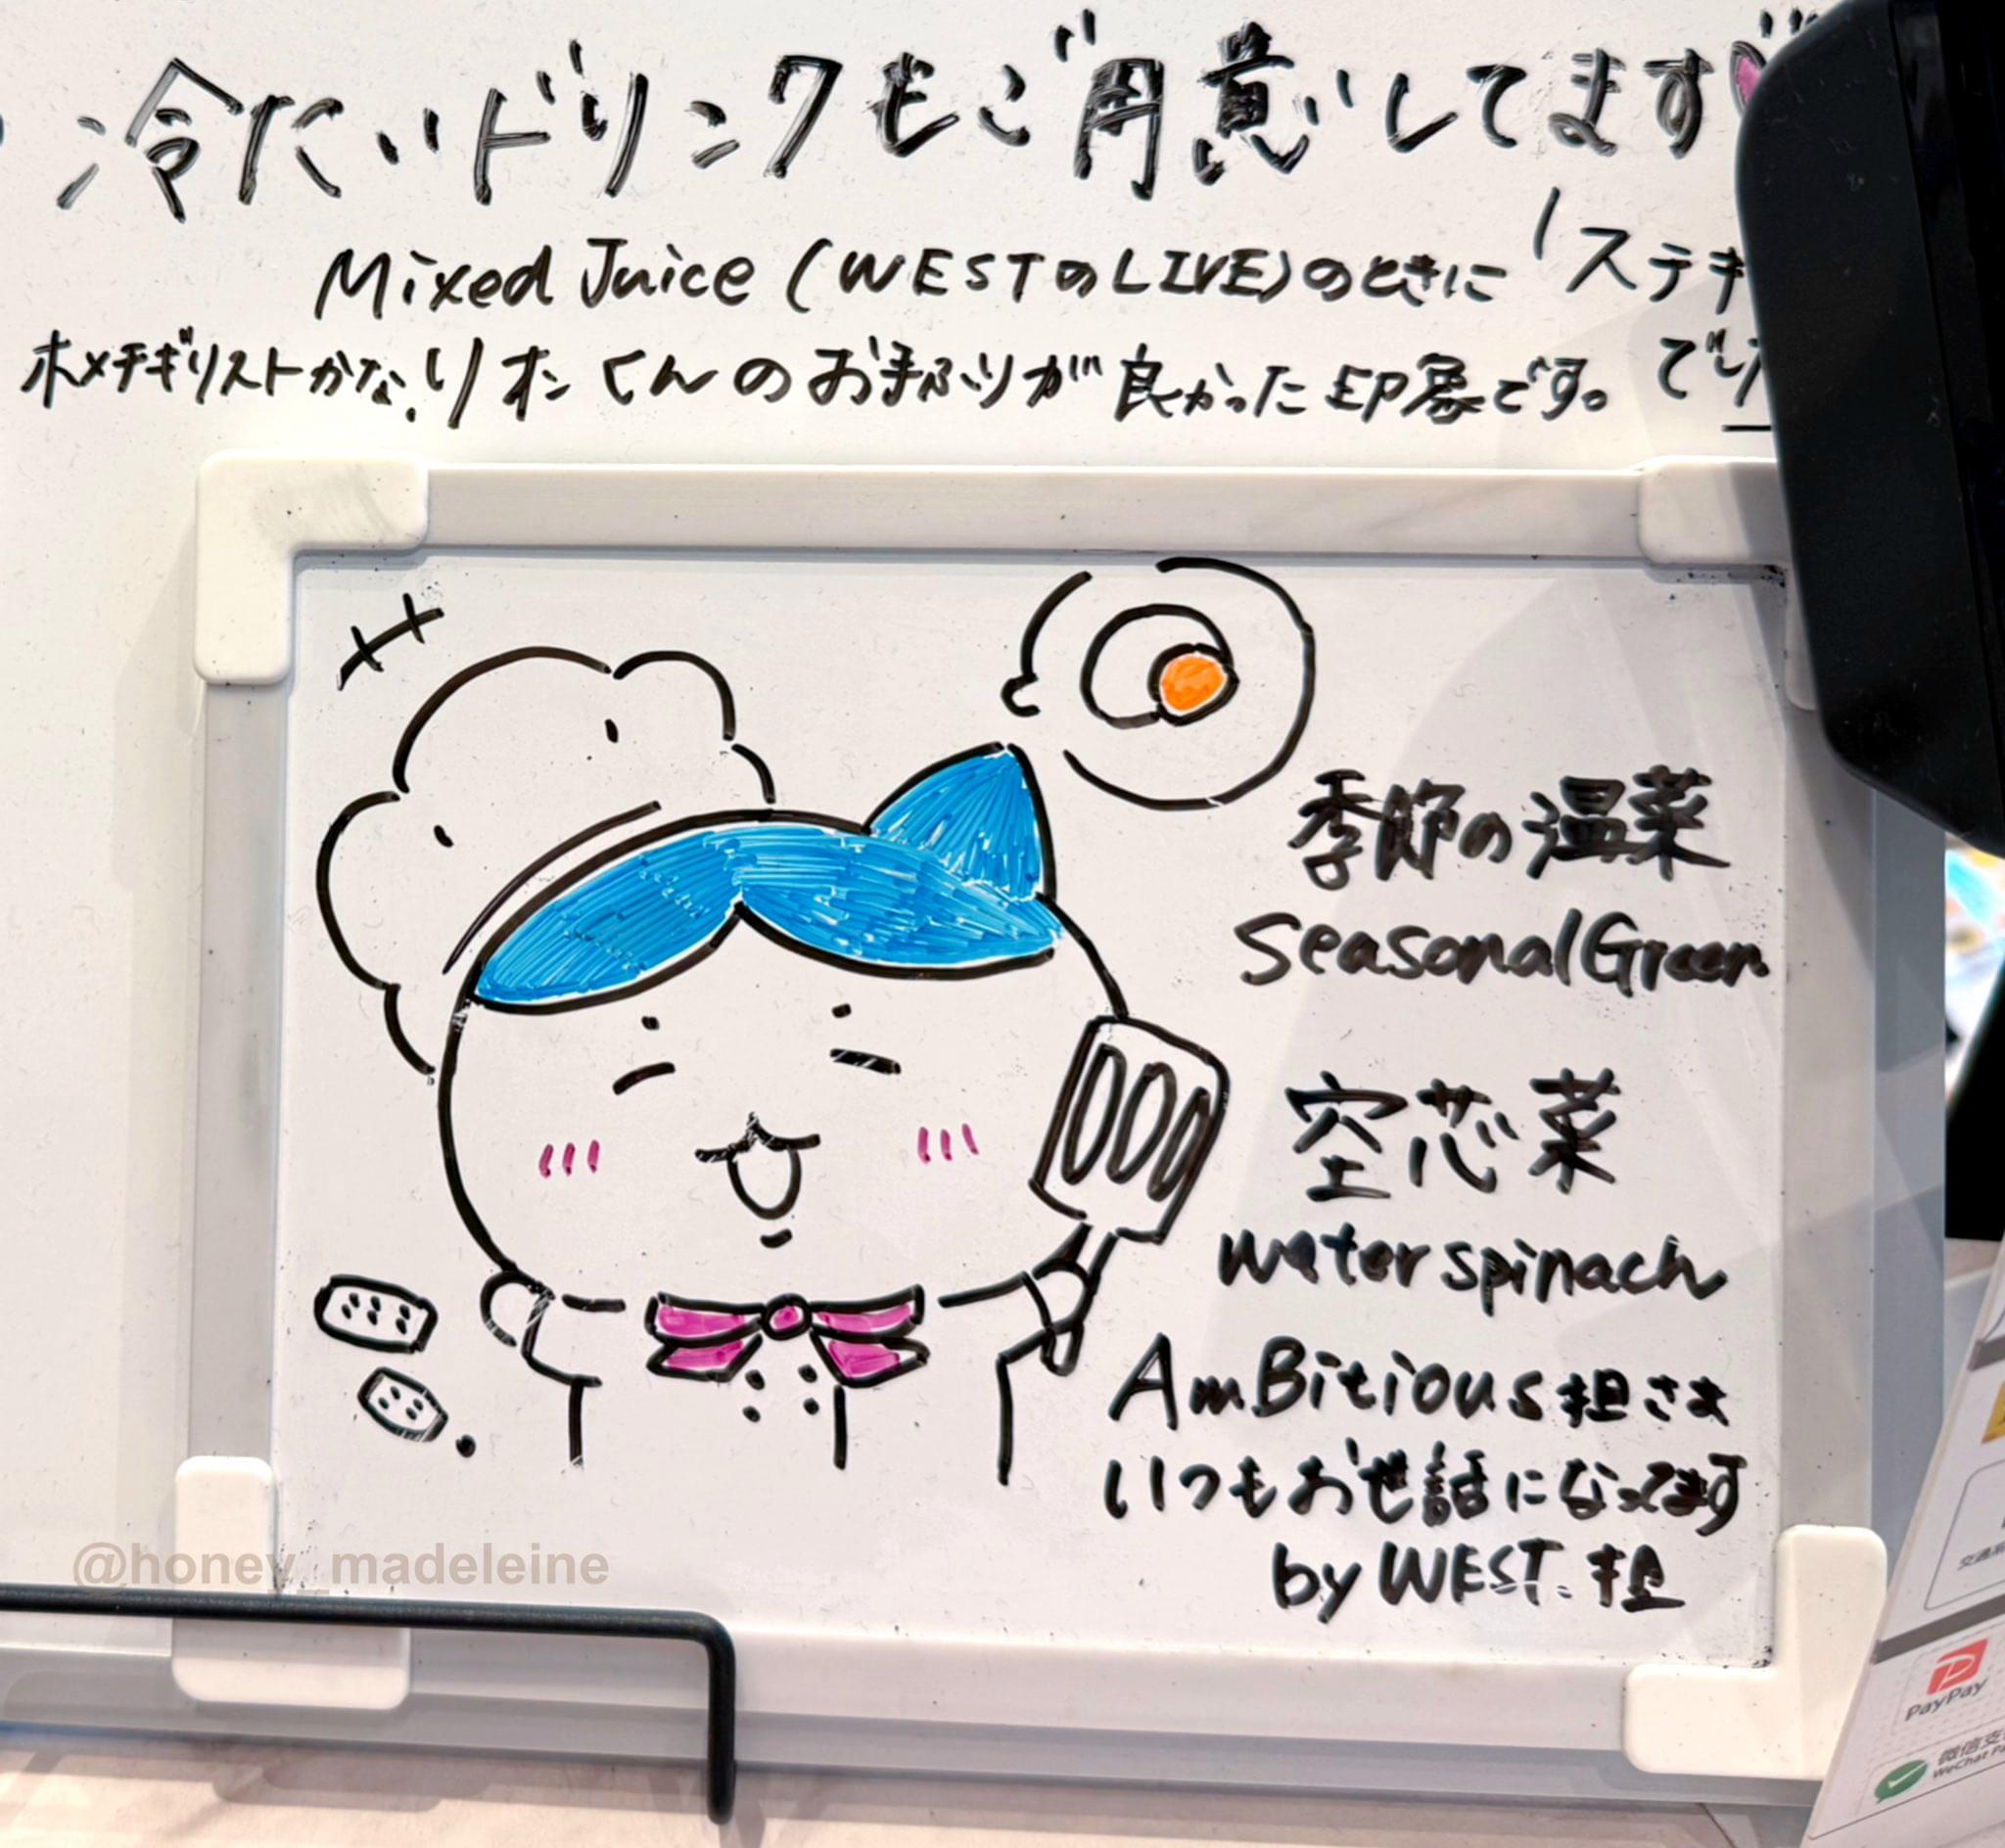 冷たいドリンクもご用意してます
Mixed Juice (WESTのLIVE)のときに
ステキ
ホメチギリストかな。リオンくんのお手ふりが良かった印象です。
でした
季節の温菜
Seasonal Green
空芯菜
water spinach
AmBitious担さま
いつもお世話になってます
by WEST.担
@honey_madeleine
PayPay
微信支
WeChat Pa